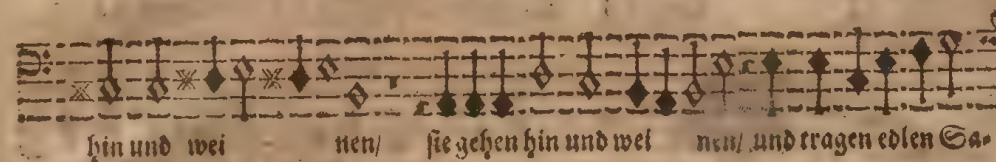 hin und wei nen/ sie gehen hin und wei nen/ und tragen edlen Sa-